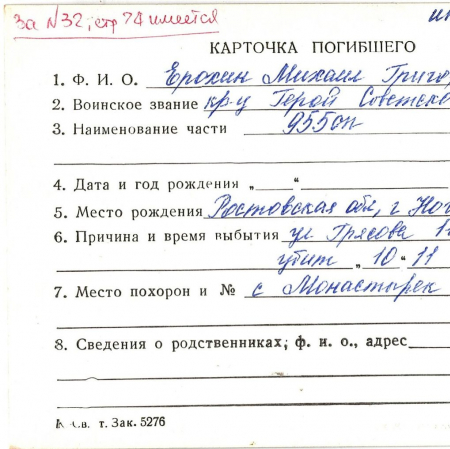 за N32, стр 74 имеется
КАРТОЧКА ПОГИБШЕГО
1. Ф. И. О. Ерохин Михаил Григо
2. Воинское звание кр-ц Герой Советско
3. Наименование части 955сп
4. Дата и год рождения „ “
5. Место рождения Ростовская обл, г Ноч
6. Причина и время выбытия ул
убит „10“ 11
7. Место похорон и № с Монастырек
8. Сведения о родственниках, ф. и. о., адрес
т. Зак. 5276